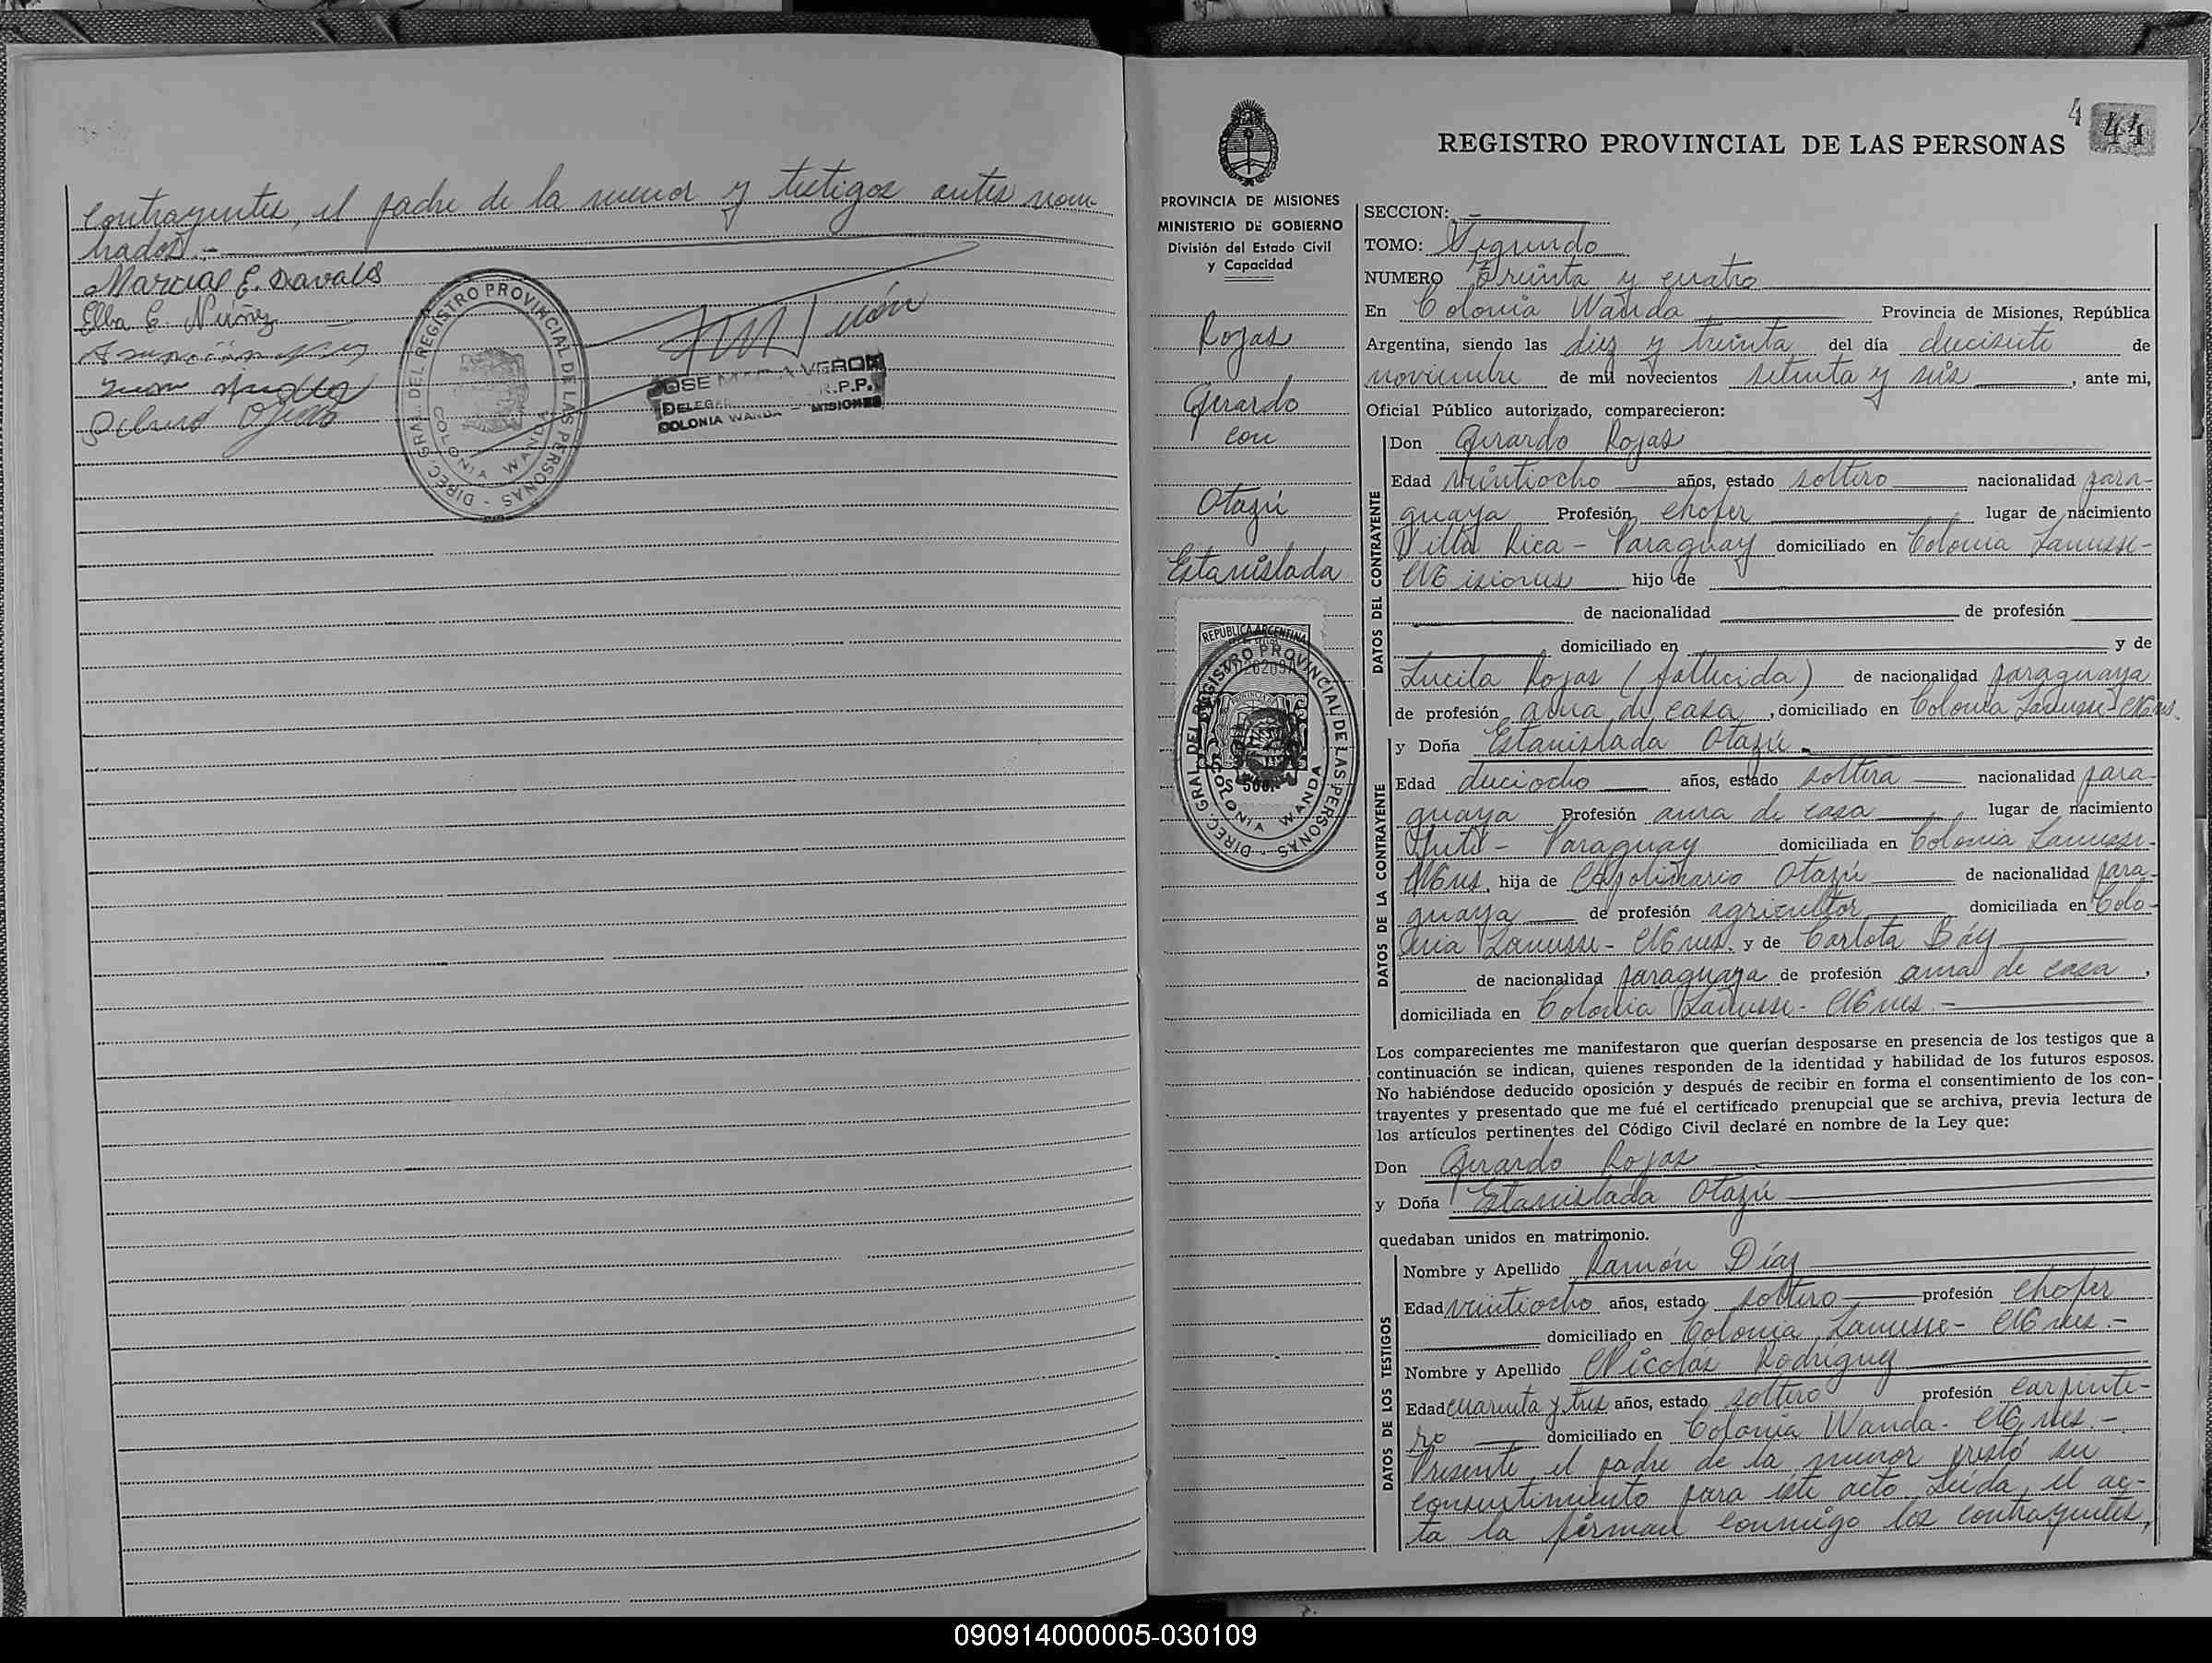 contrayentes, el padre de la menor y testigos antes nom-
brados.-
Marcial E. Davalos
Elba E. Núñez
DIREC. GRAL. DEL REGISTRO PROVINCIAL DE LAS PERSONAS -
COLONIA WANDA
JOSE MARIA VERON
DELEGA R.P.P.
COLONIA WANDA - MISIONES
4 44
REGISTRO PROVINCIAL DE LAS PERSONAS
PROVINCIA DE MISIONES
MINISTERIO DE GOBIERNO
División del Estado Civil
y Capacidad
Rojas
Gerardo
con
Otazú
Estanislada
REPUBLICA ARGENTINA
DIREC. GRAL. DEL REGISTRO PROVINCIAL DE LAS PERSONAS -
COLONIA WANDA
SECCION: -
TOMO: Segundo
NUMERO Treinta y cuatro
En Colonia Wanda Provincia de Misiones, República
Argentina, siendo las diez y treinta del día diecisiete de
noviembre de mil novecientos setenta y seis, ante mi,
Oficial Público autorizado, comparecieron:
DATOS DEL CONTRAYENTE
Don Gerardo Rojas
Edad veintiocho años, estado soltero nacionalidad para-
guaya Profesión chofer lugar de nacimiento
Villa Rica - Paraguay domiciliado en Colonia Lanusse-
Misiones hijo de
de nacionalidad de profesión
domiciliado en y de
Lucila Rojas (fallecida) de nacionalidad paraguaya
de profesión ama de casa, domiciliado en Colonia Lanusse-Mnes.
DATOS DE LA CONTRAYENTE
y Doña Estanislada Otazú.
Edad dieciocho años, estado soltera nacionalidad para-
guaya Profesión ama de casa lugar de nacimiento
Yuti - Paraguay domiciliada en Colonia Lanusse-
Mnes. hija de Apolinario Otazú de nacionalidad para-
guaya de profesión agricultor domiciliada en Colo-
nia Lanusse- Mnes. y de Carlota Báy
de nacionalidad paraguaya de profesión ama de casa,
domiciliada en Colonia Lanusse- Mnes.-
Los comparecientes me manifestaron que querían desposarse en presencia de los testigos que a
continuación se indican, quienes responden de la identidad y habilidad de los futuros esposos.
No habiéndose deducido oposición y después de recibir en forma el consentimiento de los con-
trayentes y presentado que me fué el certificado prenupcial que se archiva, previa lectura de
los artículos pertinentes del Código Civil declaré en nombre de la Ley que:
Don Gerardo Rojas
y Doña Estanislada Otazú
quedaban unidos en matrimonio.
DATOS DE LOS TESTIGOS
Nombre y Apellido Ramón Díaz
Edad veintiocho años, estado soltero profesión chofer
domiciliado en Colonia Lanusse- Mnes.-
Nombre y Apellido Nicolás Rodríguez
Edad cuarenta y tres años, estado soltero profesión carpinte-
ro domiciliado en Colonia Wanda- Mnes.-
Presente el padre de la menor prestó su
consentimiento para éste acto. Leída el ac-
ta la firman conmigo los contrayentes,
090914000005-030109